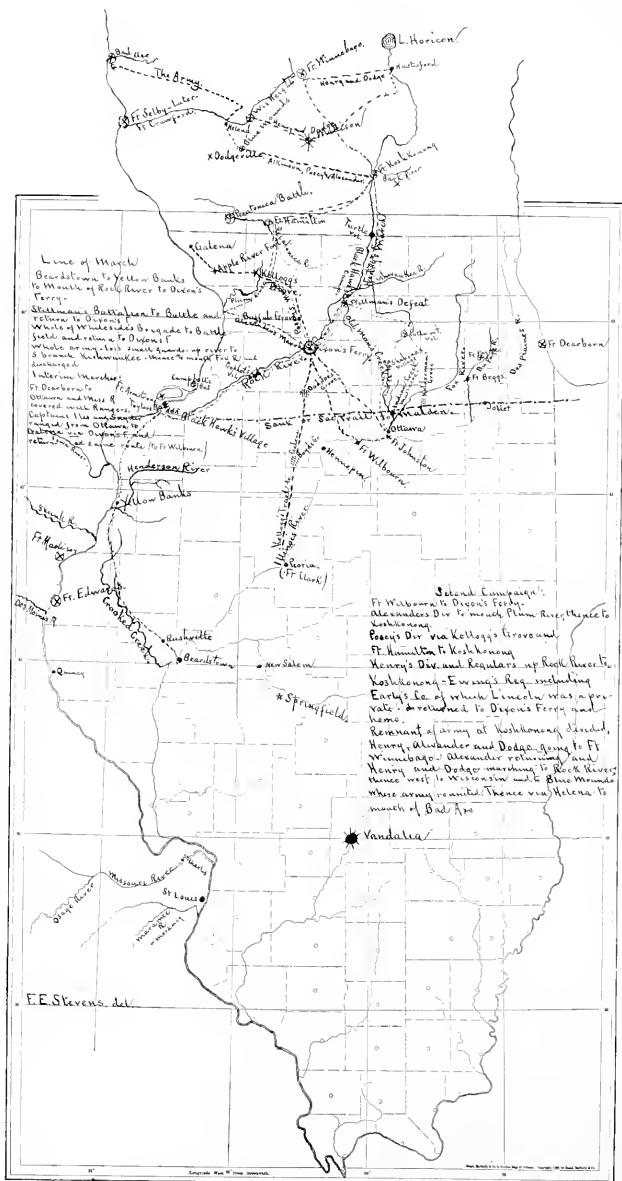 L. Horicon
Bad Axe
Ft. Winnebago
The Army
Hustisford
Henry and Dodge
Wis. Heights
Ft Selby-Later
Ft Crawford
Helena
Blue Mounds
Henry and Dodge
Madison
x Dodgeville
Atkinson, Posey & Alexander
Ft Koshkonong
Bark River
Pecatonica Battle
Ft Hamilton
Turtle
Galena
Apple River Fort
Kelloggs
Grove
Stillman's Defeat
Buffalo Grove
Dixon's Ferry
Rock River
Line of March
Beardstown to Yellow Banks
to Mouth of Rock River to Dixon's
Ferry.
Stillman's Battalion to Battle and
return to Dixon's
Whole of Whiteside's Brigade to Battle
field and return to Dixon's
Whole army-less small guards-up river to
S branch Kishwaukee - thence to mouth Fox R and
discharged
Interim Marches
Ft Dearborn to
Ottawa and Miss R
covered with Rangers
Captains Iles and Snyder
ranged from Ottawa to
Galena via Dixon's F and
returned at same route (to Ft Wilbourn)
Ft Armstrong
Campbell's
Black Hawk's Village
Fox River
Des Plaines R.
Ft Dearborn
Ft Beggs
Joliet
Sauk or Sac Trail
Malden
Ottawa
Ft Johnston
Ft Wilbourn
Hennepin
Henderson River
Yellow Banks
Kellogg's Trail to Galena
Illinois River
Peoria
(Ft Clark)
Skunk R.
Ft Madison
Ft. Edwards
Des Moines R
Crooked Creek
Rushville
Beardstown
Quincy
New Salem
Springfield
Second Campaign:
Ft Wilbourn to Dixon's Ferry-
Alexanders Div to mouth Plum River, thence to
Koshkonong.
Posey's Div via Kellogg's Grove and
Ft. Hamilton to Koshkonong
Henry's Div. and Regulars up Rock River to
Koshkonong-Ewing's Reg. including
Early's Co of which Lincoln was a pri-
vate - d returned to Dixon's Ferry and
home.
Remnant of army at Koshkonong divided,
Henry, Alexander and Dodge going to Ft
Winnebago-Alexander returning and
Henry and Dodge marching to Rock River,
thence west to Wisconsin and to Blue Mounds
where army reunited. Thence via Helena to
mouth of Bad Axe
Vandalia
Missouri River
St Charles
St Louis
Osage River
Maramec
R
F. E. Stevens. del.